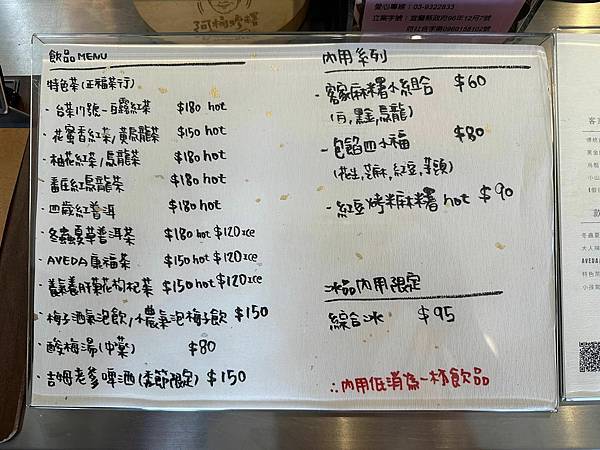 愛心專線：03-9322833
立案字號：宜蘭縣政府96年12月7號
飲品 MENU
特色茶(正福茶行)
· 台茶17號-白露紅茶 $180 hot
· 花蜜香紅茶/黃烏龍茶 $150 hot
· 柚花紅茶/烏龍茶 $180 hot
· 番庄紅烏龍茶 $180 hot
· 四歲紅普洱 $180 hot
· 冬蟲夏草普洱茶 $180 hot $120 ice
· AVEDA康福茶 $150 hot $120 ice
· 養氣養肝菊花枸杞茶 $150 hot $120 ice
· 梅子酒氣泡飲/濃氣泡梅子飲 $150
· 酸梅湯(中藥) $80
· 吉姆老爹啤酒(季節限定) $150
內用系列
· 客家麻糬小組合 $60
(月,黑金,烏龍)
- 包餡四小福 $80
(花生,芝麻,紅豆,芋頭)
- 紅豆烤麻糬 hot $90
冰品內用限定
綜合冰 $95
∴內用低消為一杯飲品